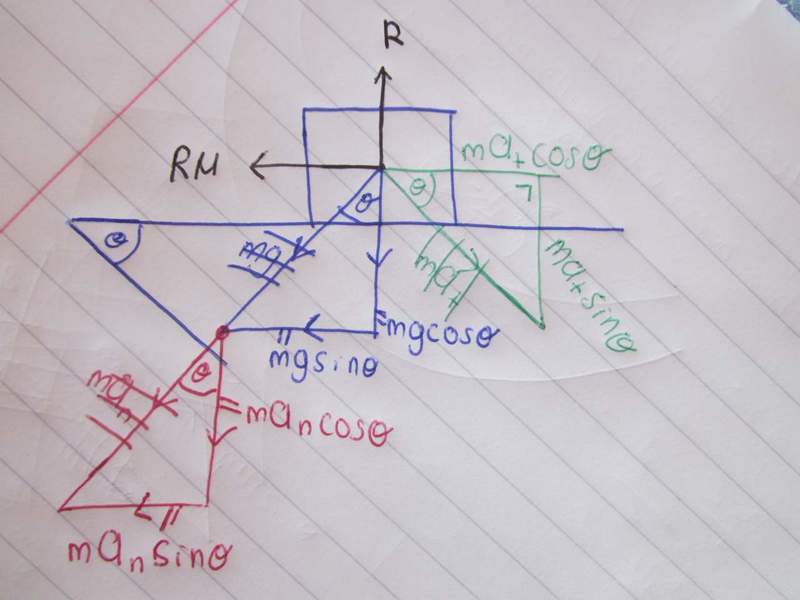 R
ma+cosθ
Rμ
θ
θ
θ
mg
ma+
ma+sinθ
mgcosθ
mgsinθ
θ
man
mancosθ
mansinθ